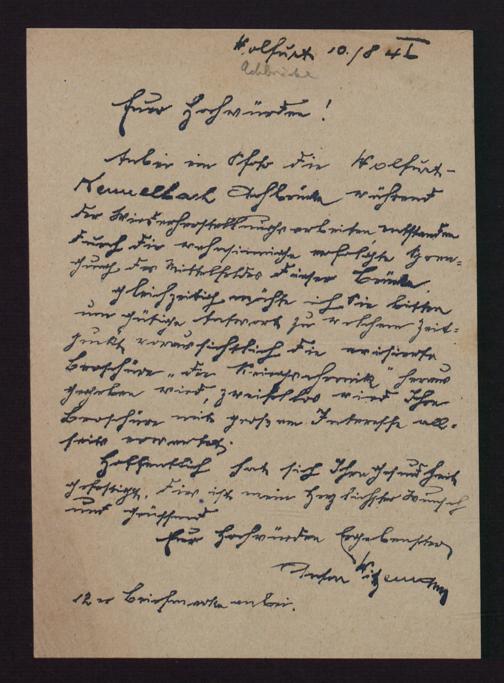 Wolfurt 10./8 46
Achbrücke
Euer Hochwürden!
Anbei ein Foto die Wolfurt-
Kennelbach Achbrücke während
der Wiederherstellungsarbeiten entstanden
durch die wahnsinnige erfolgte Spren-
gung des Mittelfeldes dieser Brücke.
Gleichzeitig möchte ich Sie bitten
um gütige Antwort zu welchem Zeit-
punkt voraussichtlich die avisierte
Broschüre "die Kriegschronik" heraus
gegeben wird, zweifellos wird Ihre
Broschüre mit großem Interesse all-
seits erwartet.
Hoffentlich hat sich Ihre Gesundheit
gefestigt, dies ist mein herzlichster Wunsch
und grüssend
Euer Hochwürden Ergebenster
Anton
12 Briefmarke anbei.